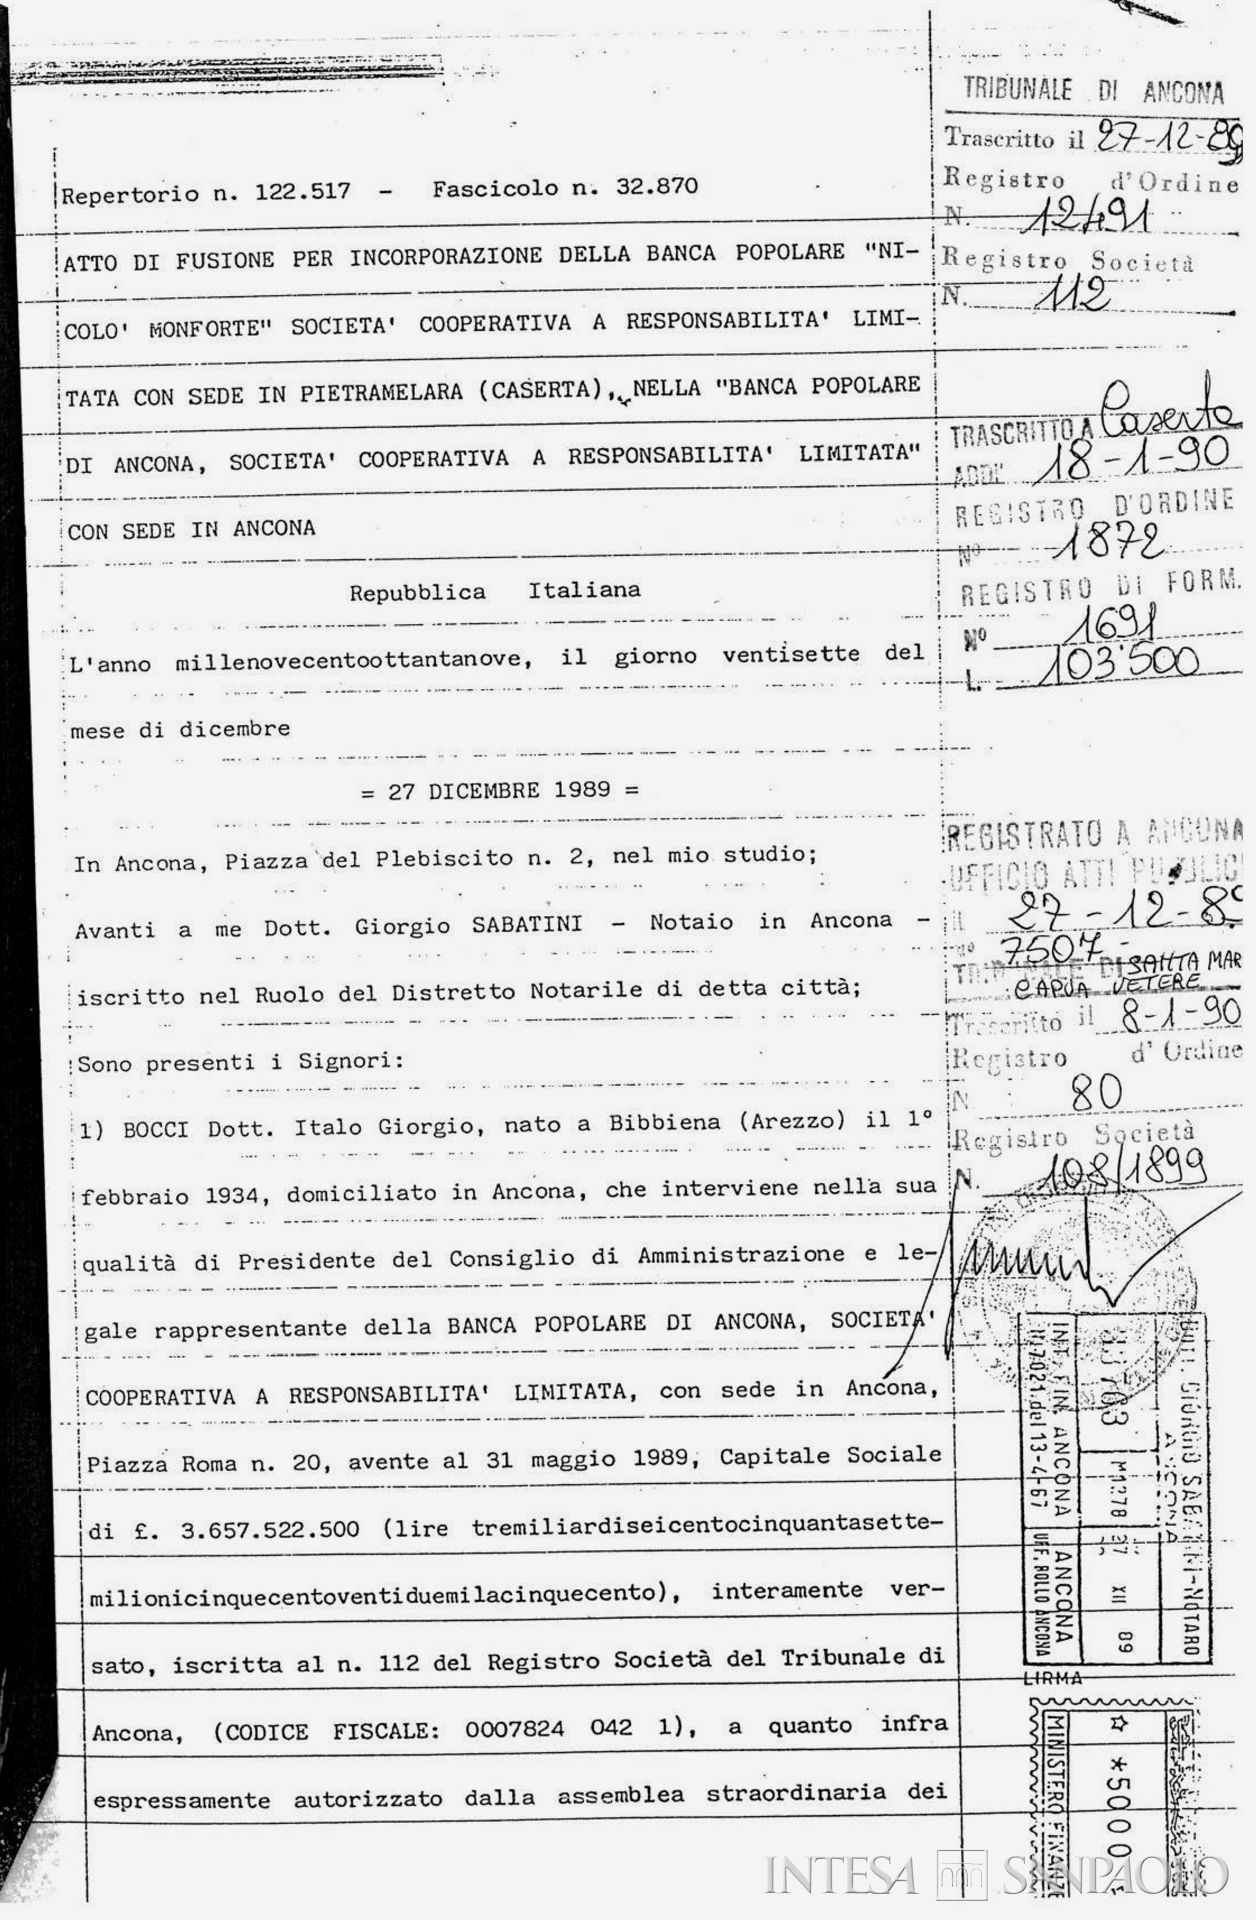 Repertorio n. 122.517 - Fascicolo n. 32.870
ATTO DI FUSIONE PER INCORPORAZIONE DELLA BANCA POPOLARE "NI-
COLO' MONFORTE" SOCIETA' COOPERATIVA A RESPONSABILITA' LIMI-
TATA CON SEDE IN PIETRAMELARA (CASERTA), NELLA "BANCA POPOLARE
DI ANCONA, SOCIETA' COOPERATIVA A RESPONSABILITA' LIMITATA"
CON SEDE IN ANCONA
Repubblica Italiana
L'anno millenovecentoottantanove, il giorno ventisette del
mese di dicembre
= 27 DICEMBRE 1989 =
In Ancona, Piazza del Plebiscito n. 2, nel mio studio;
Avanti a me Dott. Giorgio SABATINI - Notaio in Ancona -
iscritto nel Ruolo del Distretto Notarile di detta città;
Sono presenti i Signori:
1) BOCCI Dott. Italo Giorgio, nato a Bibbiena (Arezzo) il 1°
febbraio 1934, domiciliato in Ancona, che interviene nella sua
qualità di Presidente del Consiglio di Amministrazione e le-
gale rappresentante della BANCA POPOLARE DI ANCONA, SOCIETA'
COOPERATIVA A RESPONSABILITA' LIMITATA, con sede in Ancona,
Piazza Roma n. 20, avente al 31 maggio 1989, Capitale Sociale
di £. 3.657.522.500 (lire tremiliardiseicentocinquantasette-
milionicinquecentoventiduemilacinquecento), interamente ver-
sato, iscritta al n. 112 del Registro Società del Tribunale di
Ancona, (CODICE FISCALE: 0007824 042 1), a quanto infra
espressamente autorizzato dalla assemblea straordinaria dei
TRIBUNALE DI ANCONA
Trascritto il 27-12-89
Registro d'Ordine
N. 12491
Registro Società
N. 112
TRASCRITTO A Caserta
ADDI' 18-1-90
REGISTRO D'ORDINE
N° 1872
REGISTRO DI FORM.
N° 1691
L. 103'500
REGISTRATO A ANCONA
UFFICIO ATTI PUBBLICI
il 27-12-89
n° 7507
TRIBUNALE DI SANTA MAR
CAPUA VETERE
Trascritto il 8-1-90
Registro d'Ordine
N. 80
Registro Società
N. 108/1899
DOTT. GIORGIO SABATINI-NOTARO
ANCONA
27 XII 89
INT. FIN. ANCONA
N.7021.del 13-4-67
ANCONA
UFF. BOLLO ANCONA
LIRMA
☆ *5000
MINISTERO FINANZE
INTESA SANPAOLO